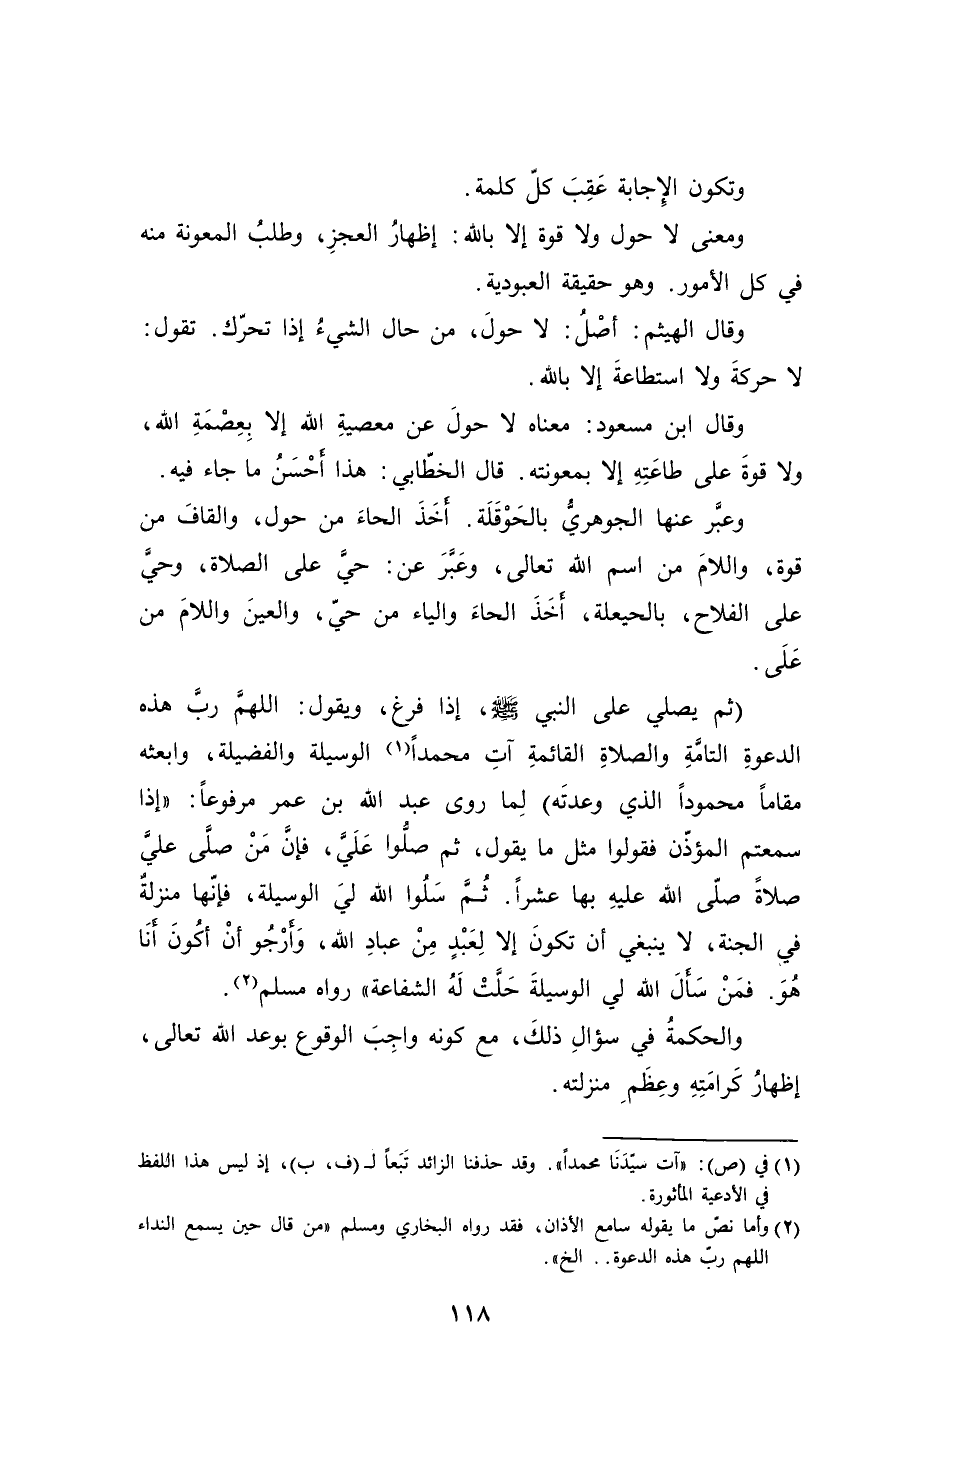 وتكون الإِجابة عَقِبَ كلّ كلمة.
ومعنى لا حول ولا قوة إلا بالله: إظهارُ العجزِ، وطلبُ المعونة منه
في كل الأمور. وهو حقيقة العبودية.
وقال الهيثم: أصْلُ: لا حولَ، من حال الشيءُ إذا تحرّك. تقول:
لا حركةَ ولا استطاعةَ إلا بالله.
وقال ابن مسعود: معناه لا حولَ عن معصيةِ الله إلا بِعِصْمَةِ الله،
ولا قوةَ على طاعَتِهِ إلا بمعونته. قال الخطّابي: هذا أَحْسَنُ ما جاء فيه.
وعبَّر عنها الجوهريُّ بالحَوْقَلَة. أَخَذَ الحاءَ من حول، والقافَ من
قوة، واللامَ من اسم الله تعالى، وعَبَّرَ عن: حيَّ على الصلاة، وحيَّ
على الفلاح، بالحيعلة، أَخَذَ الحاءَ والياء من حيّ، والعينَ واللامَ من
عَلَى.
(ثم يصلي على النبي ﷺ، إذا فرغ، ويقول: اللهمَّ ربَّ هذه
الدعوةِ التامَّةِ والصلاةِ القائمةِ آتِ محمداً(١) الوسيلة والفضيلة، وابعثه
مقاماً محموداً الذي وعدتَه) لِما روى عبد الله بن عمر مرفوعاً: «إذا
سمعتم المؤذّن فقولوا مثل ما يقول، ثم صلُّوا عَلَيَّ، فإنَّ مَنْ صلَّى عليَّ
صلاةً صلّى الله عليهِ بها عشراً. ثُمَّ سَلُوا الله ليَ الوسيلة، فإنّها منزلةٌ
في الجنة، لا ينبغي أن تكونَ إلا لِعَبْدٍ مِنْ عبادِ الله، وَأَرْجُو أنْ أكُونَ أنَا
هُوَ. فمَنْ سَأَلَ الله لي الوسيلةَ حَلَّتْ لَهُ الشفاعة» رواه مسلم(٢).
والحكمةُ في سؤالِ ذلكَ، مع كونه واجِبَ الوقوع بوعد الله تعالى،
إظهارُ كَرامَتِهِ وعِظَمِ منزلته.
(١) في (ص): «آت سيّدَنَا محمداً». وقد حذفنا الزائد تَبَعاً لـ(ف، ب)، إذ ليس هذا اللفظ
في الأدعية المأثورة.
(٢) وأما نصّ ما يقوله سامع الأذان، فقد رواه البخاري ومسلم «من قال حين يسمع النداء
اللهم ربّ هذه الدعوة.. الخ».
١١٨